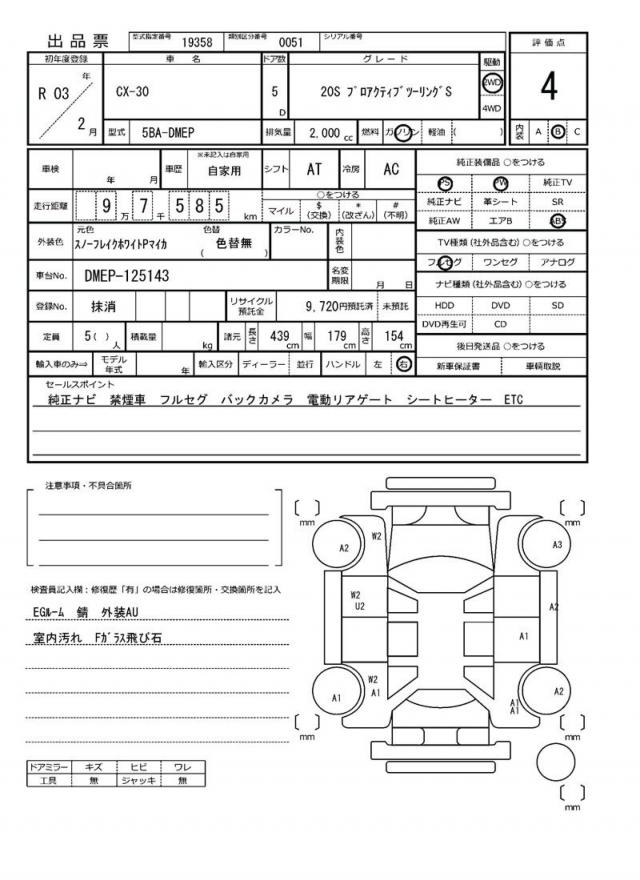 出品票 型式指定番号 19358 類別区分番号 0051 シリアル番号
評価点
4
内装 A B C
初年度登録 車名 ドア数 グレード 駆動
R 03 年 2 月 CX-30 5 D 20S プロアクティブツーリングS 2WD
4WD
型式 5BA-DMEP 排気量 2,000 cc 燃料 ガソリン 軽油 ( )
車検 年 月 車歴 ※未記入は自家用 自家用 シフト AT 冷房 AC
走行距離 9 万 7 千 5 8 5 km ○をつける
マイル $(交換) *(改ざん) #(不明)
外装色 元色 スノーフレイクホワイトPマイカ 色替 ( 色替無 ) カラーNo. 内装色
車台No. DMEP-125143 名変期限 月 日
登録No. 抹消 リサイクル預託金 9,720円預託済 未預託
定員 5( )人 積載量 kg 諸元 長さ 439 cm 幅 179 cm 高さ 154 cm
輸入車のみ⇒ モデル年式 年 輸入区分 ディーラー 並行 ハンドル 左 右
純正装備品 ○をつける
PS PW 純正TV
純正ナビ 革シート SR
純正AW エアB ABS
TV種類(社外品含む) ○をつける
フルセグ ワンセグ アナログ
ナビ種類(社外品含む) ○をつける
HDD DVD SD
DVD再生可 CD
後日発送品 ○をつける
新車保証書 車輌取説
セールスポイント
純正ナビ 禁煙車 フルセグ バックカメラ 電動リアゲート シートヒーター ETC
注意事項・不具合箇所
検査員記入欄：修復歴「有」の場合は修復箇所・交換箇所を記入
EGルーム 錆 外装AU
室内汚れ Fガラス飛び石
ドアミラー キズ ヒビ ワレ
工具 無 ジャッキ 無
[ ] mm [ ] mm
A2 W2 A3
W2
U2 A2
A1
W2
A1 A1 A1
A1 A2
[ ] mm [ ] mm
[ ] mm